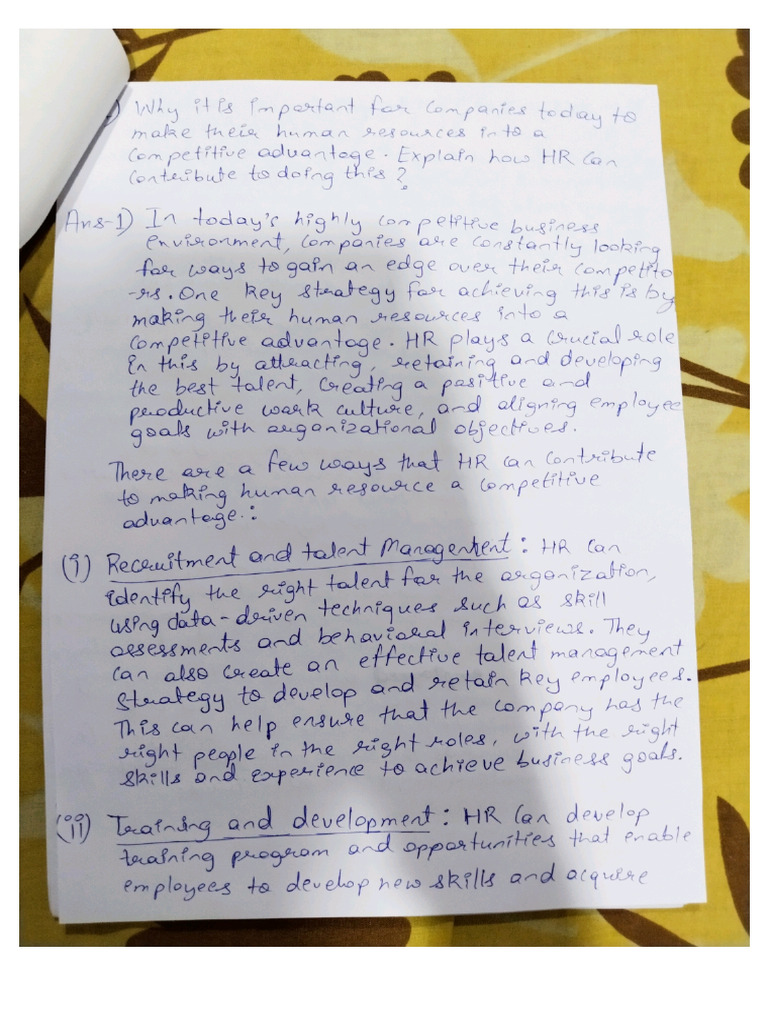 ) Why it is important for Companies today to
make their human resources into a
Competitive advantage. Explain how HR Can
Contribute to doing this?
Ans-1) In today's highly competitive business
environment, Companies are constantly looking
for ways to gain an edge over their competito
-rs. One key strategy for achieving this is by
making their human resources into a
Competitive advantage. HR plays a crucial role
in this by attracting, retaining and developing
the best talent, Creating a positive and
productive work culture, and aligning employee
goals with organizational objectives.
There are a few ways that HR can Contribute
to making human resource a Competitive
advantage.:
(i) Recruitment and talent Management: HR Can
identify the right talent for the organization,
using data-driven techniques such as skill
assessments and behavioral interviews. They
Can also create an effective talent management
strategy to develop and retain key employees.
This can help ensure that the company has the
right people in the right roles, with the right
skills and experience to achieve business goals.
(ii) Training and development: HR Can develop
training program and opportunities that enable
employees to develop new skills and acquire